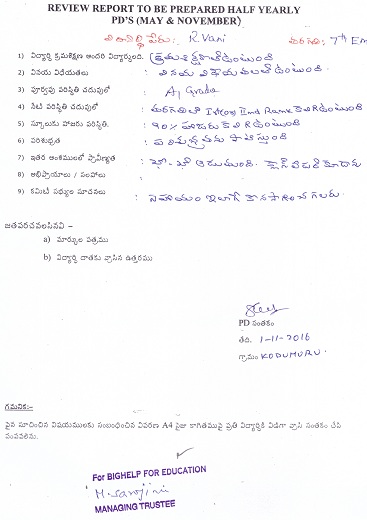 REVIEW REPORT TO BE PREPARED HALF YEARLY
PD'S (MAY & NOVEMBER)
విద్యార్థి పేరు: R Vani తరగతి: 7th Em
1) విద్యార్థి క్రమశిక్షణ అందరి విద్యార్థుల్లో. క్రమశిక్షణతో ఉంటుంది
2) వినయ విధేయతలు : వినయ విధేయతలతో ఉంటుంది.
3) పూర్వపు పరిస్థితి చదువులో : A, Grade
4) నేటి పరిస్థితి చదువులో : తరగతిలో Ist (or) IInd Rank లో ఉంటుంది
5) స్కూలుకు హాజరు పరిస్థితి. : 90% హాజరు కలిగి ఉంటుంది
6) పరిశుభ్రత : పరిశుభ్రతను పాటిస్తుంది
7) ఇతర అంశములలో ప్రావీణ్యత : ఖో-ఖో ఆడుతుంది.
8) అభిప్రాయాలు / సలహాలు :
9) కమిటీ సభ్యుల సూచనలు : సహాయం ఇలాగే కొనసాగించగలరు.
జతపరచవలసినవి –
a) మార్కుల పత్రము
b) విద్యార్థి దాతకు వ్రాసిన ఉత్తరము
PD సంతకం
తేది. 1-11-2016
గ్రామం KODUMURU.
గమనిక:–
పైన సూచించిన విషయములకు సంబంధించిన వివరణ A4 సైజు కాగితముపై ప్రతి విద్యార్థికి విడిగా వ్రాసి సంతకం చేసి
పంపవలెను.
For BIGHELP FOR EDUCATION
M. Sarojini
MANAGING TRUSTEE